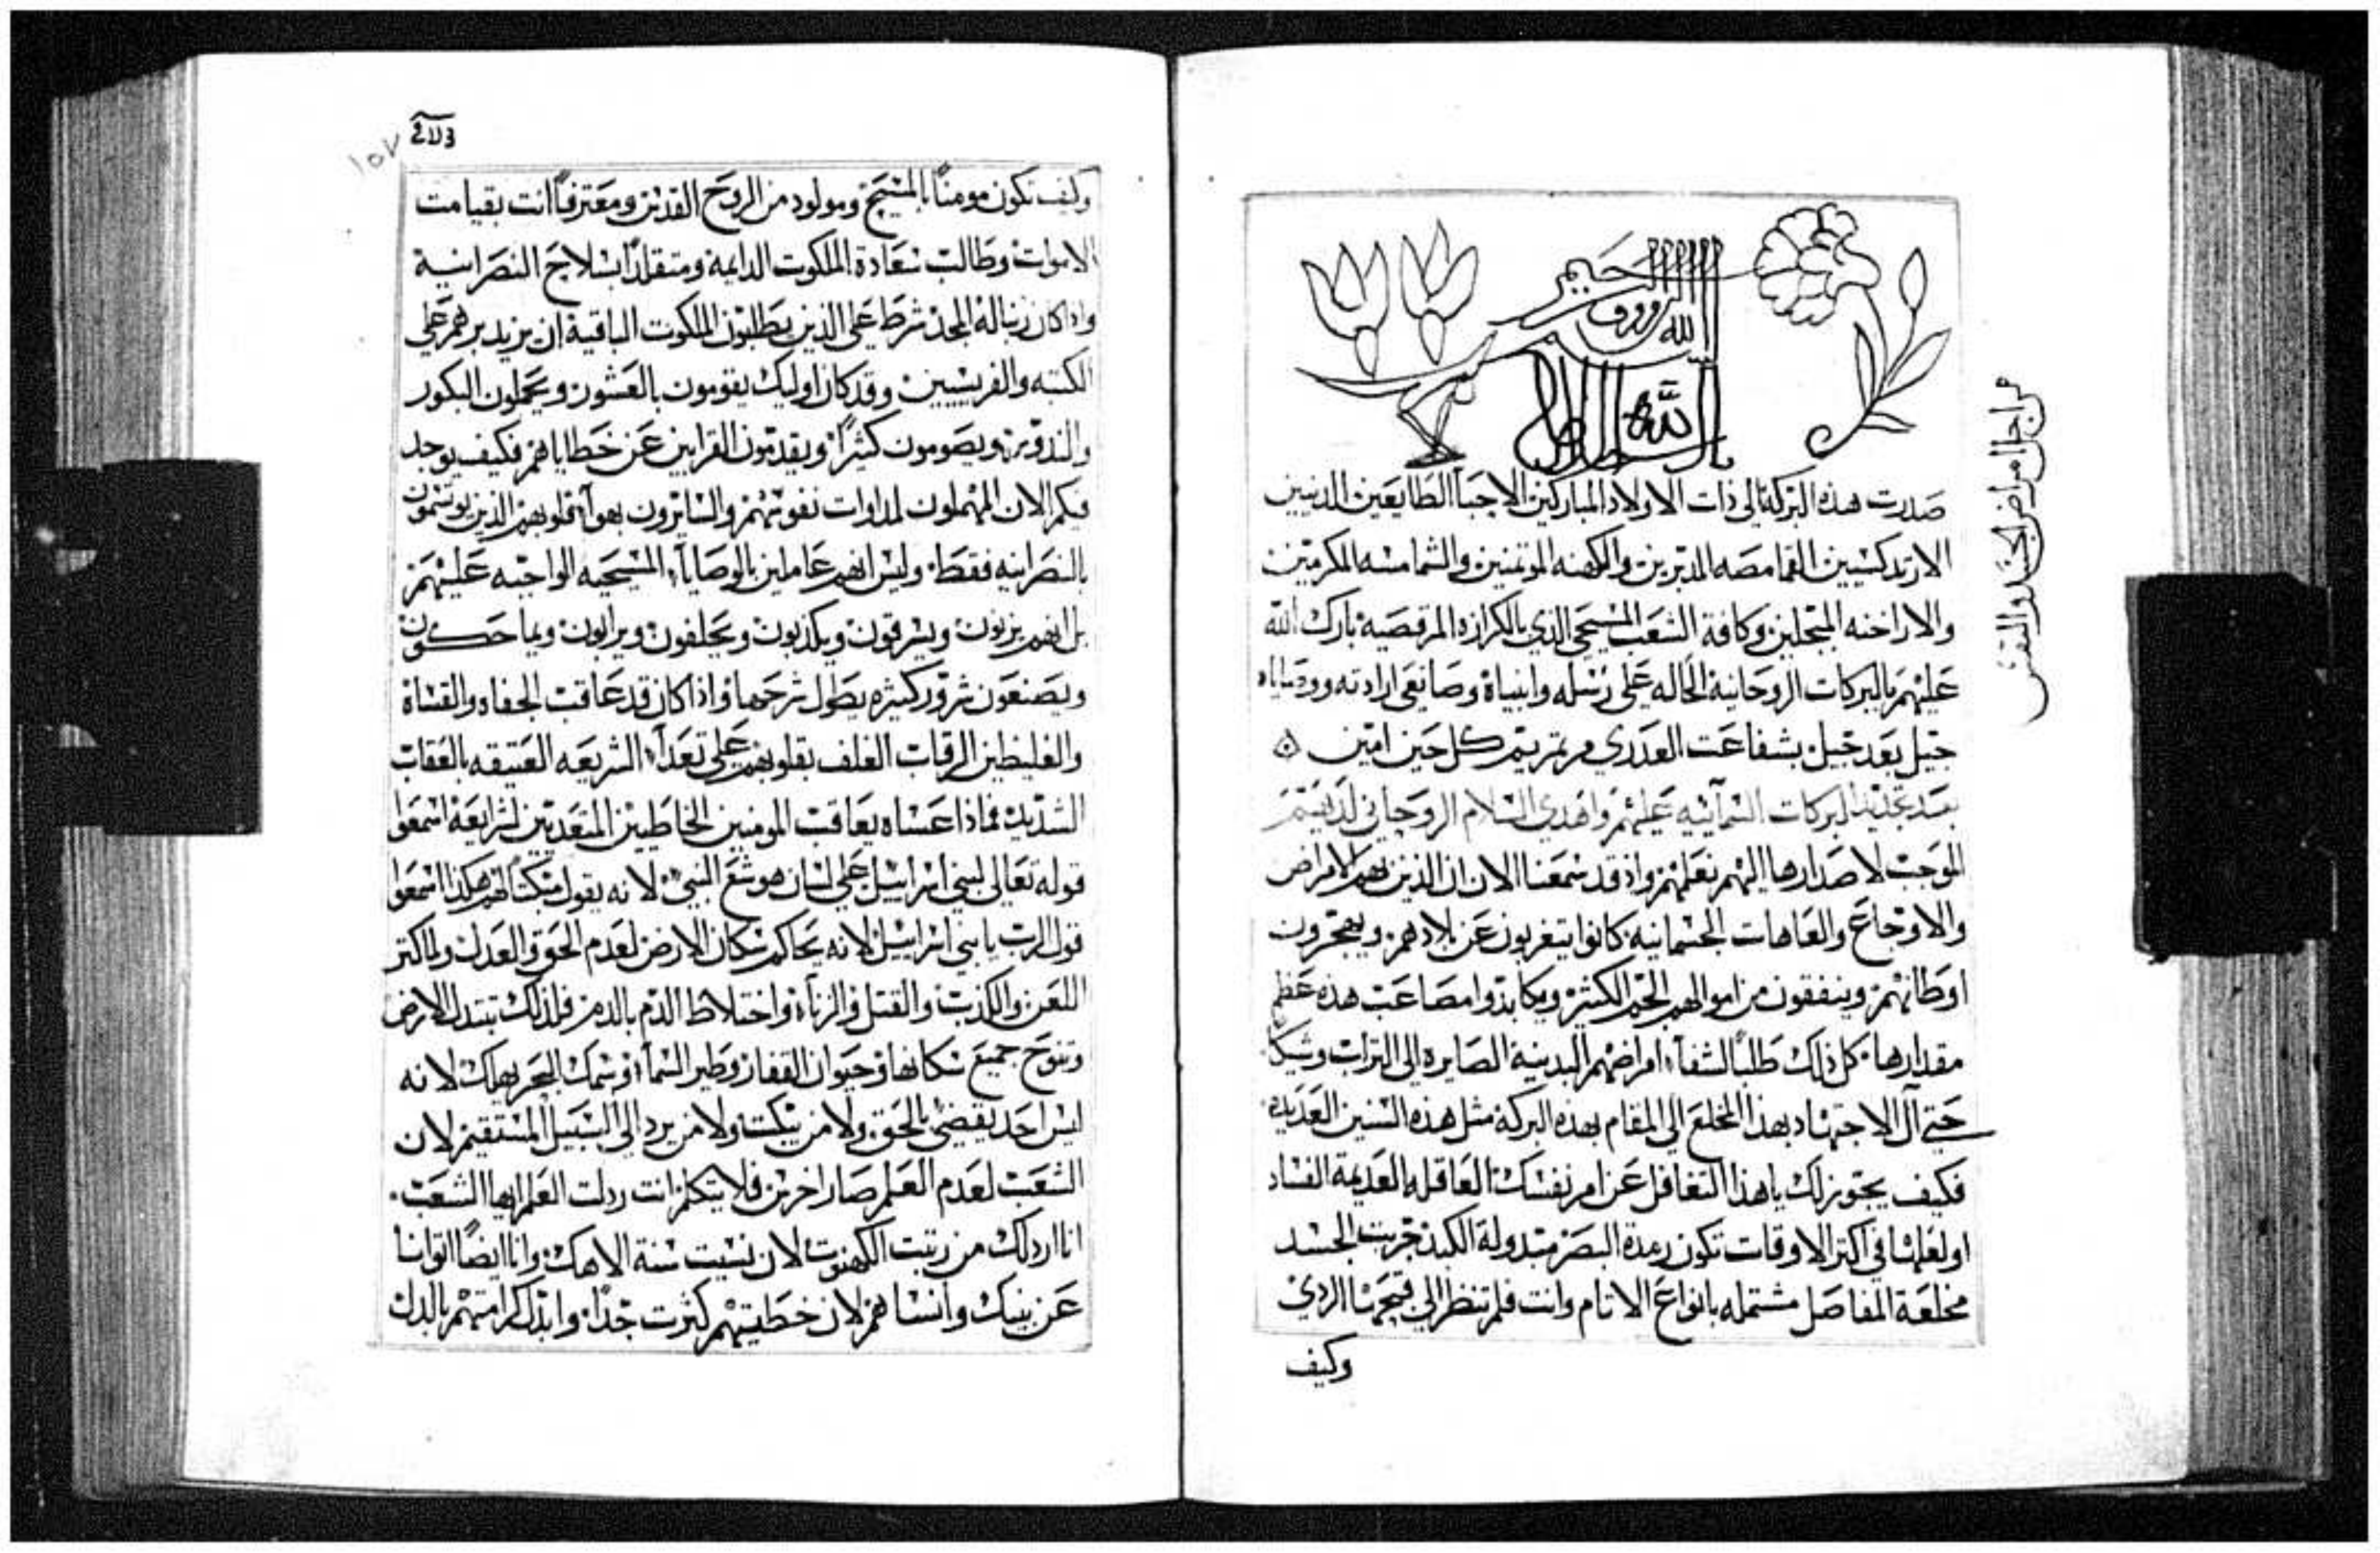 بسم الله الرووف الرحيم
صدرت هذه البركة الى ذات الاولاد المباركين الاحبآ الطايعين الدينيين
الارتدكسيين القمامصه المدبرين والكهنه الموتمنين والشمامسه المكرمين
والاراخنه المبجلين وكافة الشعب المسيحى الذي بالكرازه المرقصية بارك الله
عليهم بالبركات الروحانية الحاله على رسله وانبياة وصانعى ارادته ووصاياه
جيل بعد جيل بشفاعت العدرى مرتمريم كل حين امين
بعد تجديد البركات السمآئيه عليهم واهدي السلام الروحاني لديهم
الموجب لاصدارها اليهم نعلمهم واذ قد سمعنا الان ان الذين بهم الامراض
والاوجاع والعاهات الجسمانيه كانوا يتغربون عن بلادهم ويهجرون
اوطانهم وينفقون من اموالهم الجم الكثير ويكابدوا مصاعب هذه عظم
مقدارها كل ذلك طلبًا لشفآء امراضهم البدينية الصايره الى التراب وشيكًا
حتي آل الاجتهاد بهذا المخلع الى المقام بهذه البركة مثل هذه السنين العديدة
فكيف يجوز لك ياهذا التغافل عن امر نفسك العاقله العديمة الفساد
اولعلها في اكتر الاوقات تكون رمدة البصر مبدولة الكبد جربت الجسد
مخلعة المفاصل مشتمله بانواع الاتام وانت فلم تنظر الى قيحها الردي
وكيف
من اجل امراض الجسد والنفس
١٥٧
وكيف تكون مومنًا بالمسيح ومولود من الروح القدس ومعترفًا انت بقيامت
الاموات وطالب سعادة الملكوت الدايمة ومتقلدًا بسلاح النصرانية
واذا كان ربنا له المجد شرط على الذين يطلبون الملكوت الباقية ان يزيد برهم على
الكتبه والفريسيين وقد كان اوليك يقومون بالعشور ويحملون البكور
والندور ويصومون كثيرًا ويقدمون القرابين عن خطاياهم فكيف يوجد
فيكم الان المهملون لمداوات نفوسهم والسايرون بهوآ قلوبهم الذين يوسمون
بالنصرانيه فقط وليس انهم عاملين بالوصايآء المسيحيه الواجبه عليهم
بل انهم يزنون ويسرقون ويكذبون ويحلفون ويرابون ويماحكون
ويصنعون شرور كثيره يطول شرحها واذا كان قد عاقب الجفاه والقساة
والغليظين الرقاب الغلف بقلوبهم على تعدآء الشريعه العتيقه بالعقاب
الشديد فماذا عساه يعاقب المومنيين الخاطيين المتعديين لشرايعة اسمعوا
قوله تعالى لبني اسراييل على لسان هوشع النبي لانه يقول مبكتًا لهم هكذا اسمعوا
قول الرب يا بني اسراييل لانه يحاكم سكان الارض لعدم الحق والعدل ولما كتر
اللعن والكذب والقتل والزناء واختلاط الدم بالدم فلذلك تبتدل الارض
وتنوح جميع سكانها وحيوان القفار وطير السمآء وسمك البحر يهلك لانه
ليس احد يقضي بالحق ولا من يبكت ولا من يرد الى السبيل المستقيم لان
الشعب لعدم العلم صار اخرس فلا يتكلم انت ردلت العلم ايها الشعب
انا اردلك من رتبت الكهنوت لان نسيت سنة الاهك وانا ايضًا اتوانا
عن بنيك وانساهم لان خطيتهم كثرت جدًا وابدل كرامتهم بالدل